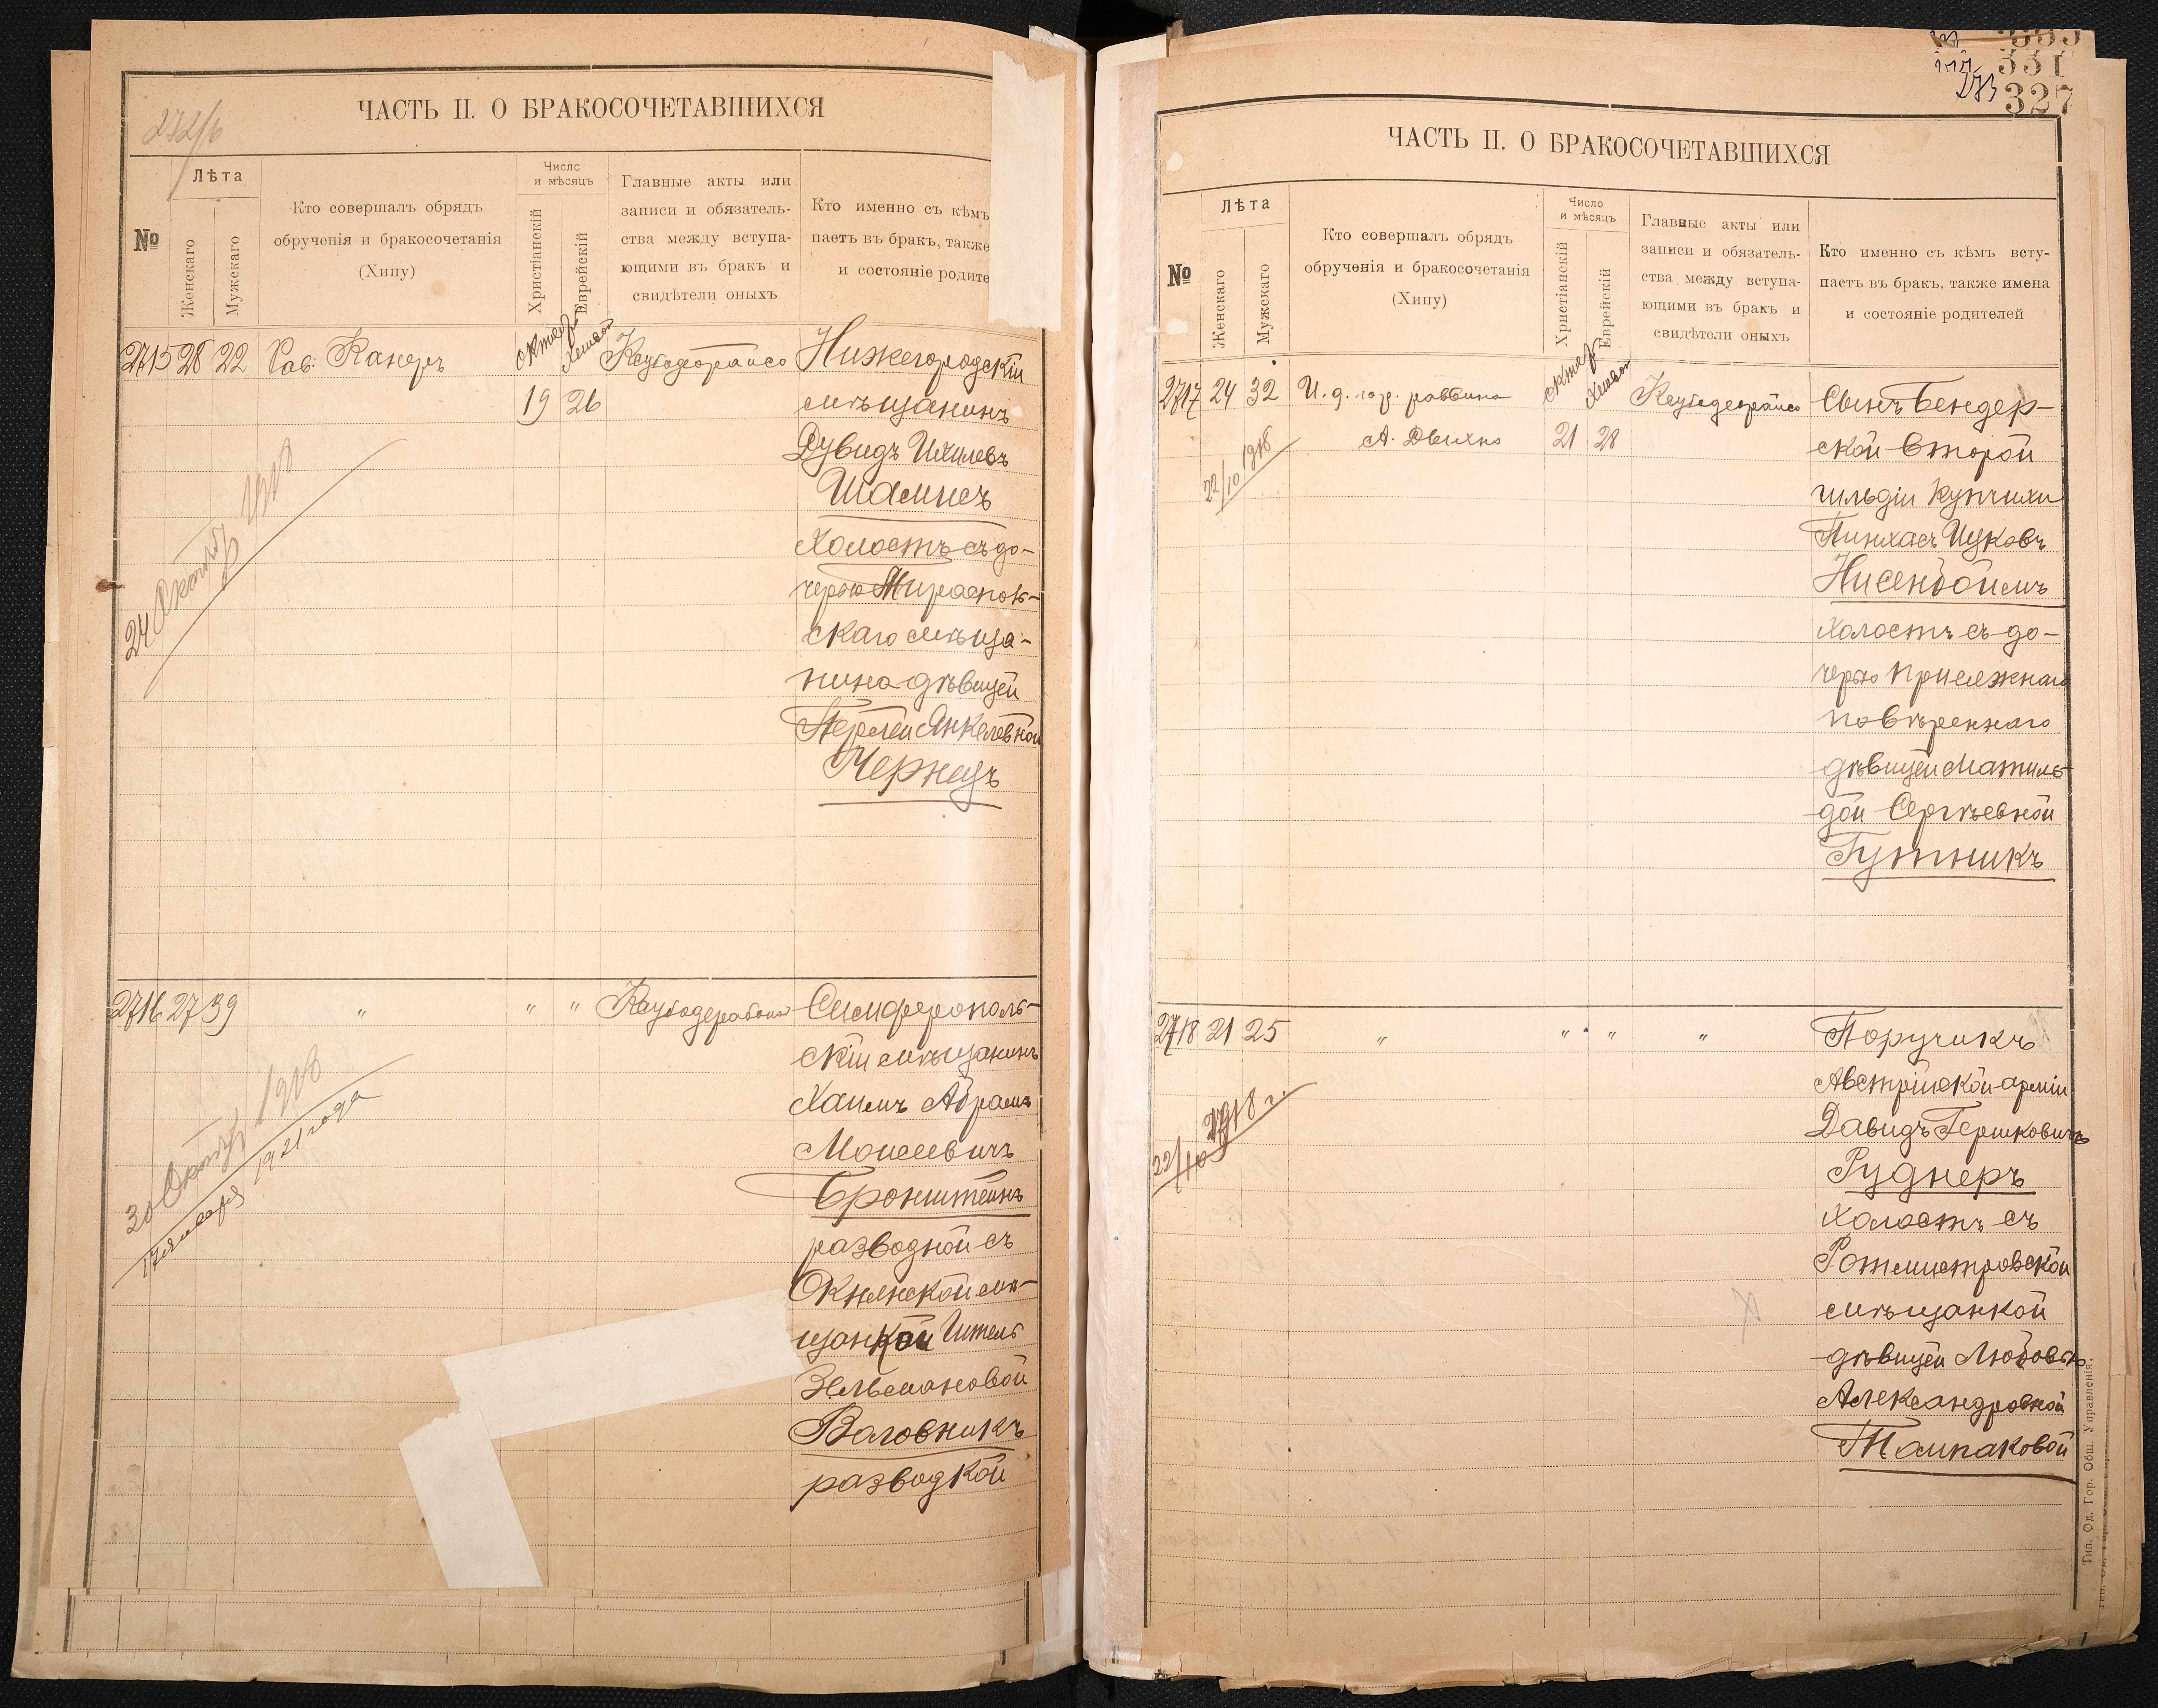 272/б
ЧАСТЬ II. О БРАКОСОЧЕТАВШИХСЯ
№
Лѣта
Женскаго
Мужскаго
Кто совершалъ обрядъ
обрученія и бракосочетанія
(Хипу)
Число
и мѣсяцъ
Христіанскій
Еврейскій
Главные акты или
записи и обязатель-
ства между вступа-
ющими въ бракъ и
свидѣтели оныхъ
Кто именно съ кѣмъ
паетъ въ бракъ, также
и состояніе родите
2715 28 22 Рав. Канеръ
19 26
Нижегородскій
мѣщанинъ
Дувидъ Ихилевъ
Шамисъ
Холостъ съ до-
черью Тирасполь-
скаго мѣща-
нина дѣвицей
Перлей Янкелевной
Чернецъ
24 Октября 1918
2716 27 39 " " "
Симферополь-
скій мѣщанинъ
Хаимъ Абрамъ
Моисеевичъ
Бронштейнъ
разводной съ
Окнянской мѣ-
щанкой Шитель
Зельмановой
Воловникъ
разводкой
30 Октября 1918
17 января 1921 года
333
331
273
327
ЧАСТЬ II. О БРАКОСОЧЕТАВШИХСЯ
№
Лѣта
Женскаго
Мужскаго
Кто совершалъ обрядъ
обрученія и бракосочетанія
(Хипу)
Число
и мѣсяцъ
Христіанскій
Еврейскій
Главные акты или
записи и обязатель-
ства между вступа-
ющими въ бракъ и
свидѣтели оныхъ
Кто именно съ кѣмъ всту-
паетъ въ бракъ, также имена
и состояніе родителей
2717 24 32 И. д. гор. раввина
А. Двихно 21 28
22/10 1918
Сынъ Бендер-
ской второй
гильдіи купчихи
Пинхасъ Ицковъ
Нисенбоймъ
Холостъ съ до-
черью присяжнаго
повѣреннаго
дѣвицей Матиль-
дой Сергѣевной
Гутникъ
2718 21 25 " " " "
22/10 1918 г.
Поручикъ
Австрійской арміи
Давидъ Гершковичъ
Руднеръ
Холостъ съ
Ротмистровской
мѣщанкой
дѣвицей Любовью
Александровной
Толпаковой
Тип. Од. Гор. Общ. Управленія.